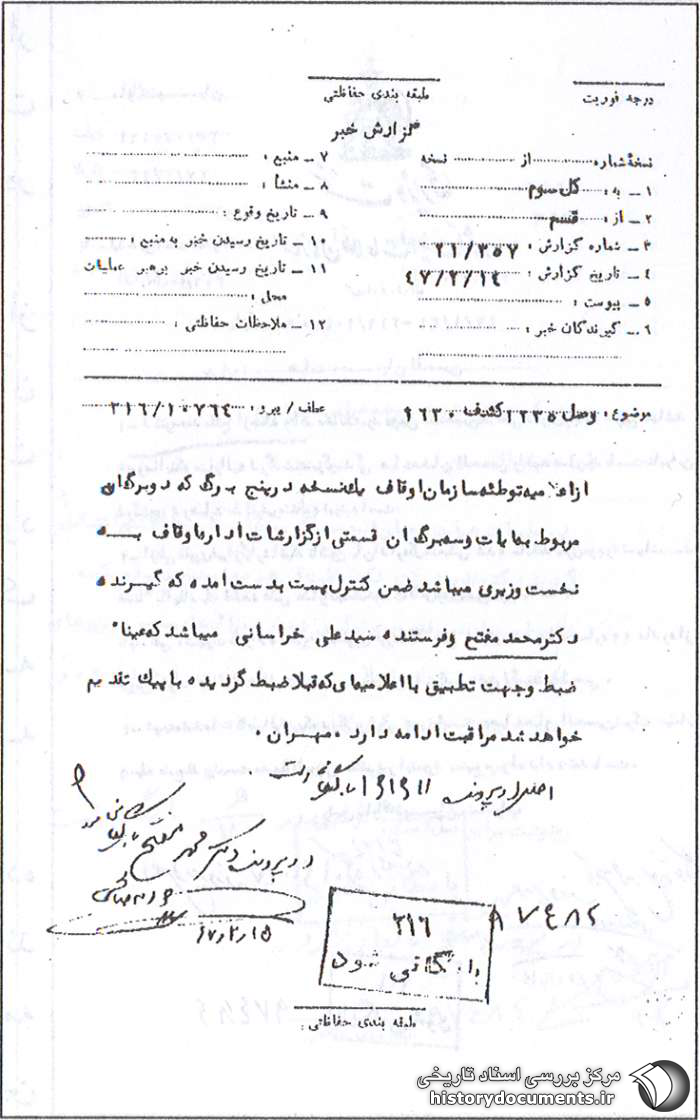 طبقه بندی حفاظتی
درجه فوریت
گزارش خبر
نسخهٔ شماره از نسخه
۱ ـ به : کل سوم
۲ ـ از : قسم
۳ ـ شماره گزارش : ۲۱/۳۵۷
۴ ـ تاریخ گزارش : ۴۷/۲/۱۴
۵ ـ پیوست :
۶ ـ گیرندگان خبر :
۷ ـ منبع :
۸ ـ منشأ :
۹ ـ تاریخ وقوع :
۱۰ ـ تاریخ رسیدن خبر به منبع :
۱۱ ـ تاریخ رسیدن خبر برهبر عملیات
محل :
۱۲ ـ ملاحظات حفاظتی :
موضوع : وصل ۱۲۳۵ کشف ۱۶۲۰ عطف / پیرو : ۳۱۶/۱۰۷۶۴
ازاعلامیه توطئه سازمان اوقاف یک نسخه در پنج برگ که دوبرگ آن
مربوط بهابیات وسه برگ ان قسمتی ازگزارشات اداره اوقاف به
نخست وزیری میباشد ضمن کنترل پست بدست امده که گیرنده
دکتر محمد مفتح وفرستنده سید علی خراسانی میباشد که عینا"
ضبط وجهت تطبیق با اعلامیه‌ای که قبلا ضبط گردیده با پیک تقدیم
خواهد شد مراقبت ادامه دارد . مهران .
اصل در پرونده ۱۹۱۹۱۱ بایگانی است
در پرونده دکتر محمد مفتح بایگانی
۴۷/۲/۱۵
۳۱۶
بایگانی شود
۹۷۴۸۲
طبقه بندی حفاظتی :
مرکز بررسی اسناد تاریخی
historydocuments.ir